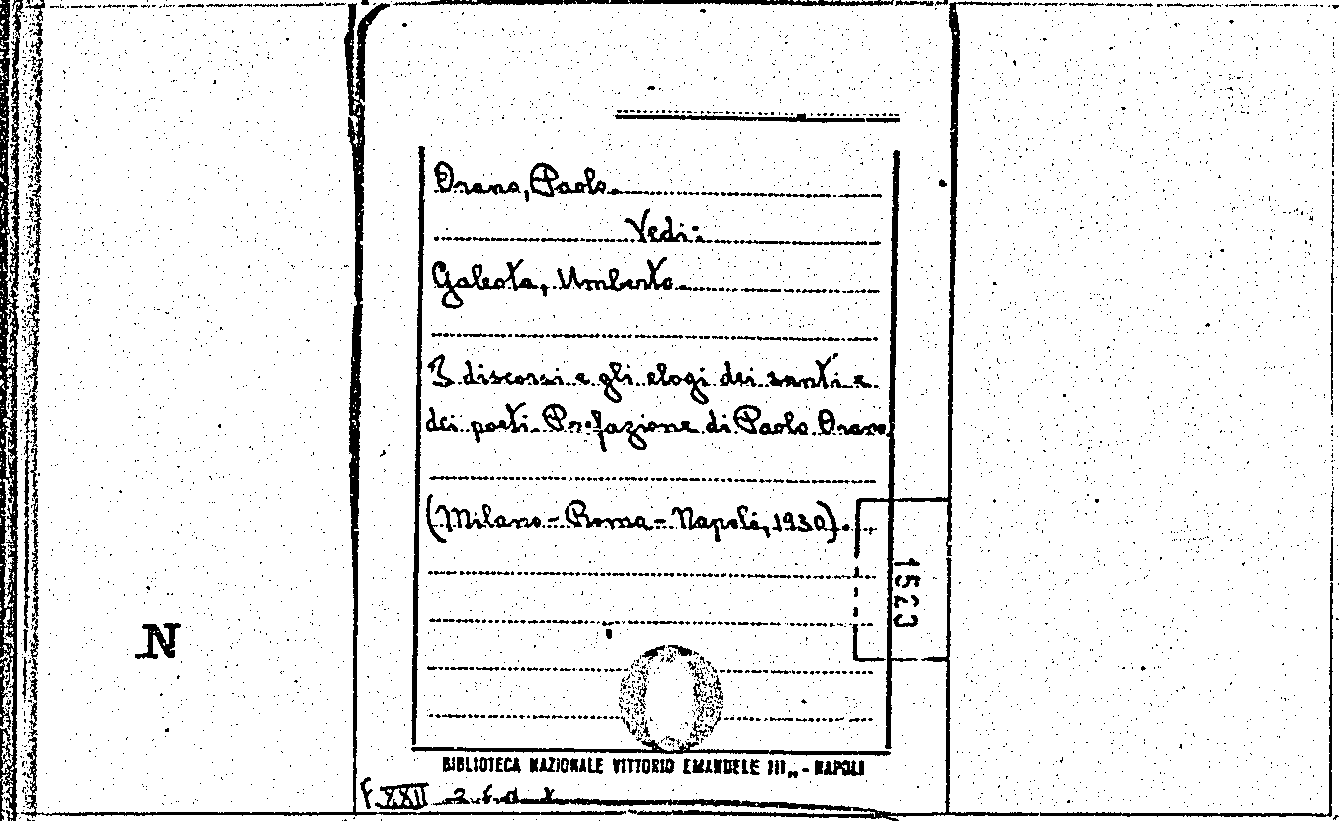 Orano, Paolo
Vedi:
Galeota, Umberto
I discorsi e gli elogi dei santi e
dei poeti. Prefazione di Paolo Orano
(Milano - Roma - Napoli, 1930).
1523
N
BIBLIOTECA NAZIONALE VITTORIO EMANUELE III" - NAPOLI
F. XXII